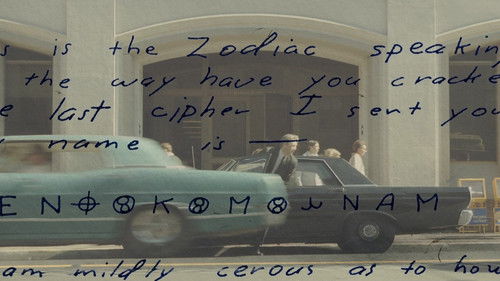 s is the Zodiac speakin
the way have you cracke
e last cipher I sent you
name is —
E N ⌖ ⊗ K ⊗ M ⊗ N A M
am mildly cerous as to how